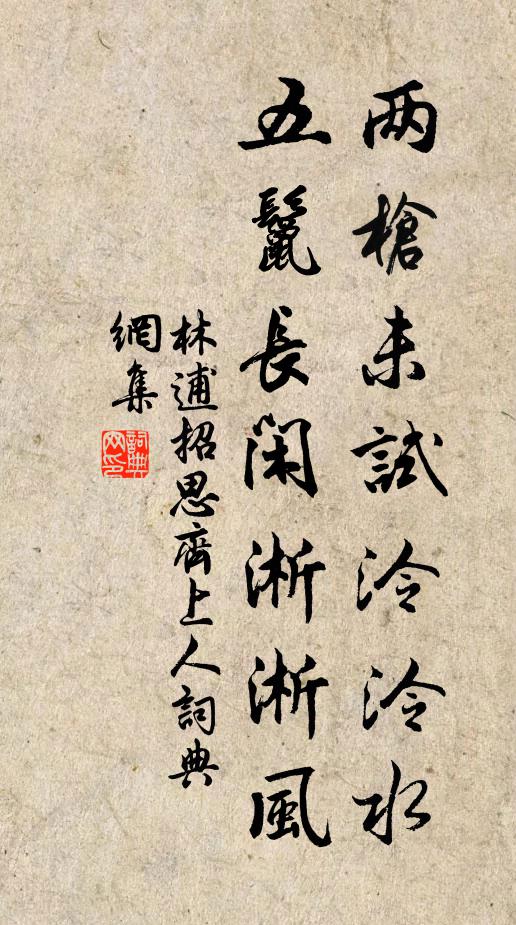 两槍未試泠泠水
五鬣長閑淅淅風
林逋招思齊上人詞典
網集
詞典
网印